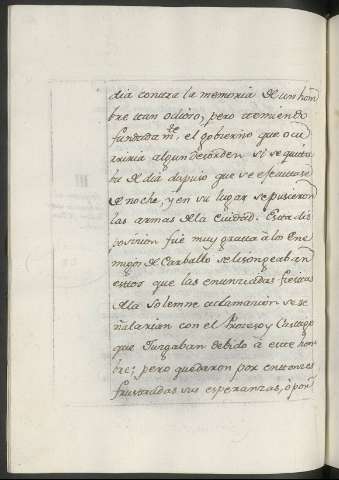 dia contra la memoria de un hom
bre tan odioso, pero temiendo
fundadam.te el gobierno que ocu
rriria algun desorden si se quita
ba de dia dispuso que se efectuase
de noche, y en su lugar se pusieron
las armas de la ciudad. Esta dis
posicion fue muy grata á los Ene
migos de Carballo se lisongeaban
estos que las enunciadas fiestas
de la solemne aclamacion se se
ñalarian con el Proceso y Castigo
que Jusgaban debido á este hom
bre; pero quedaron por entonces
frustradas sus esperanzas, ó por